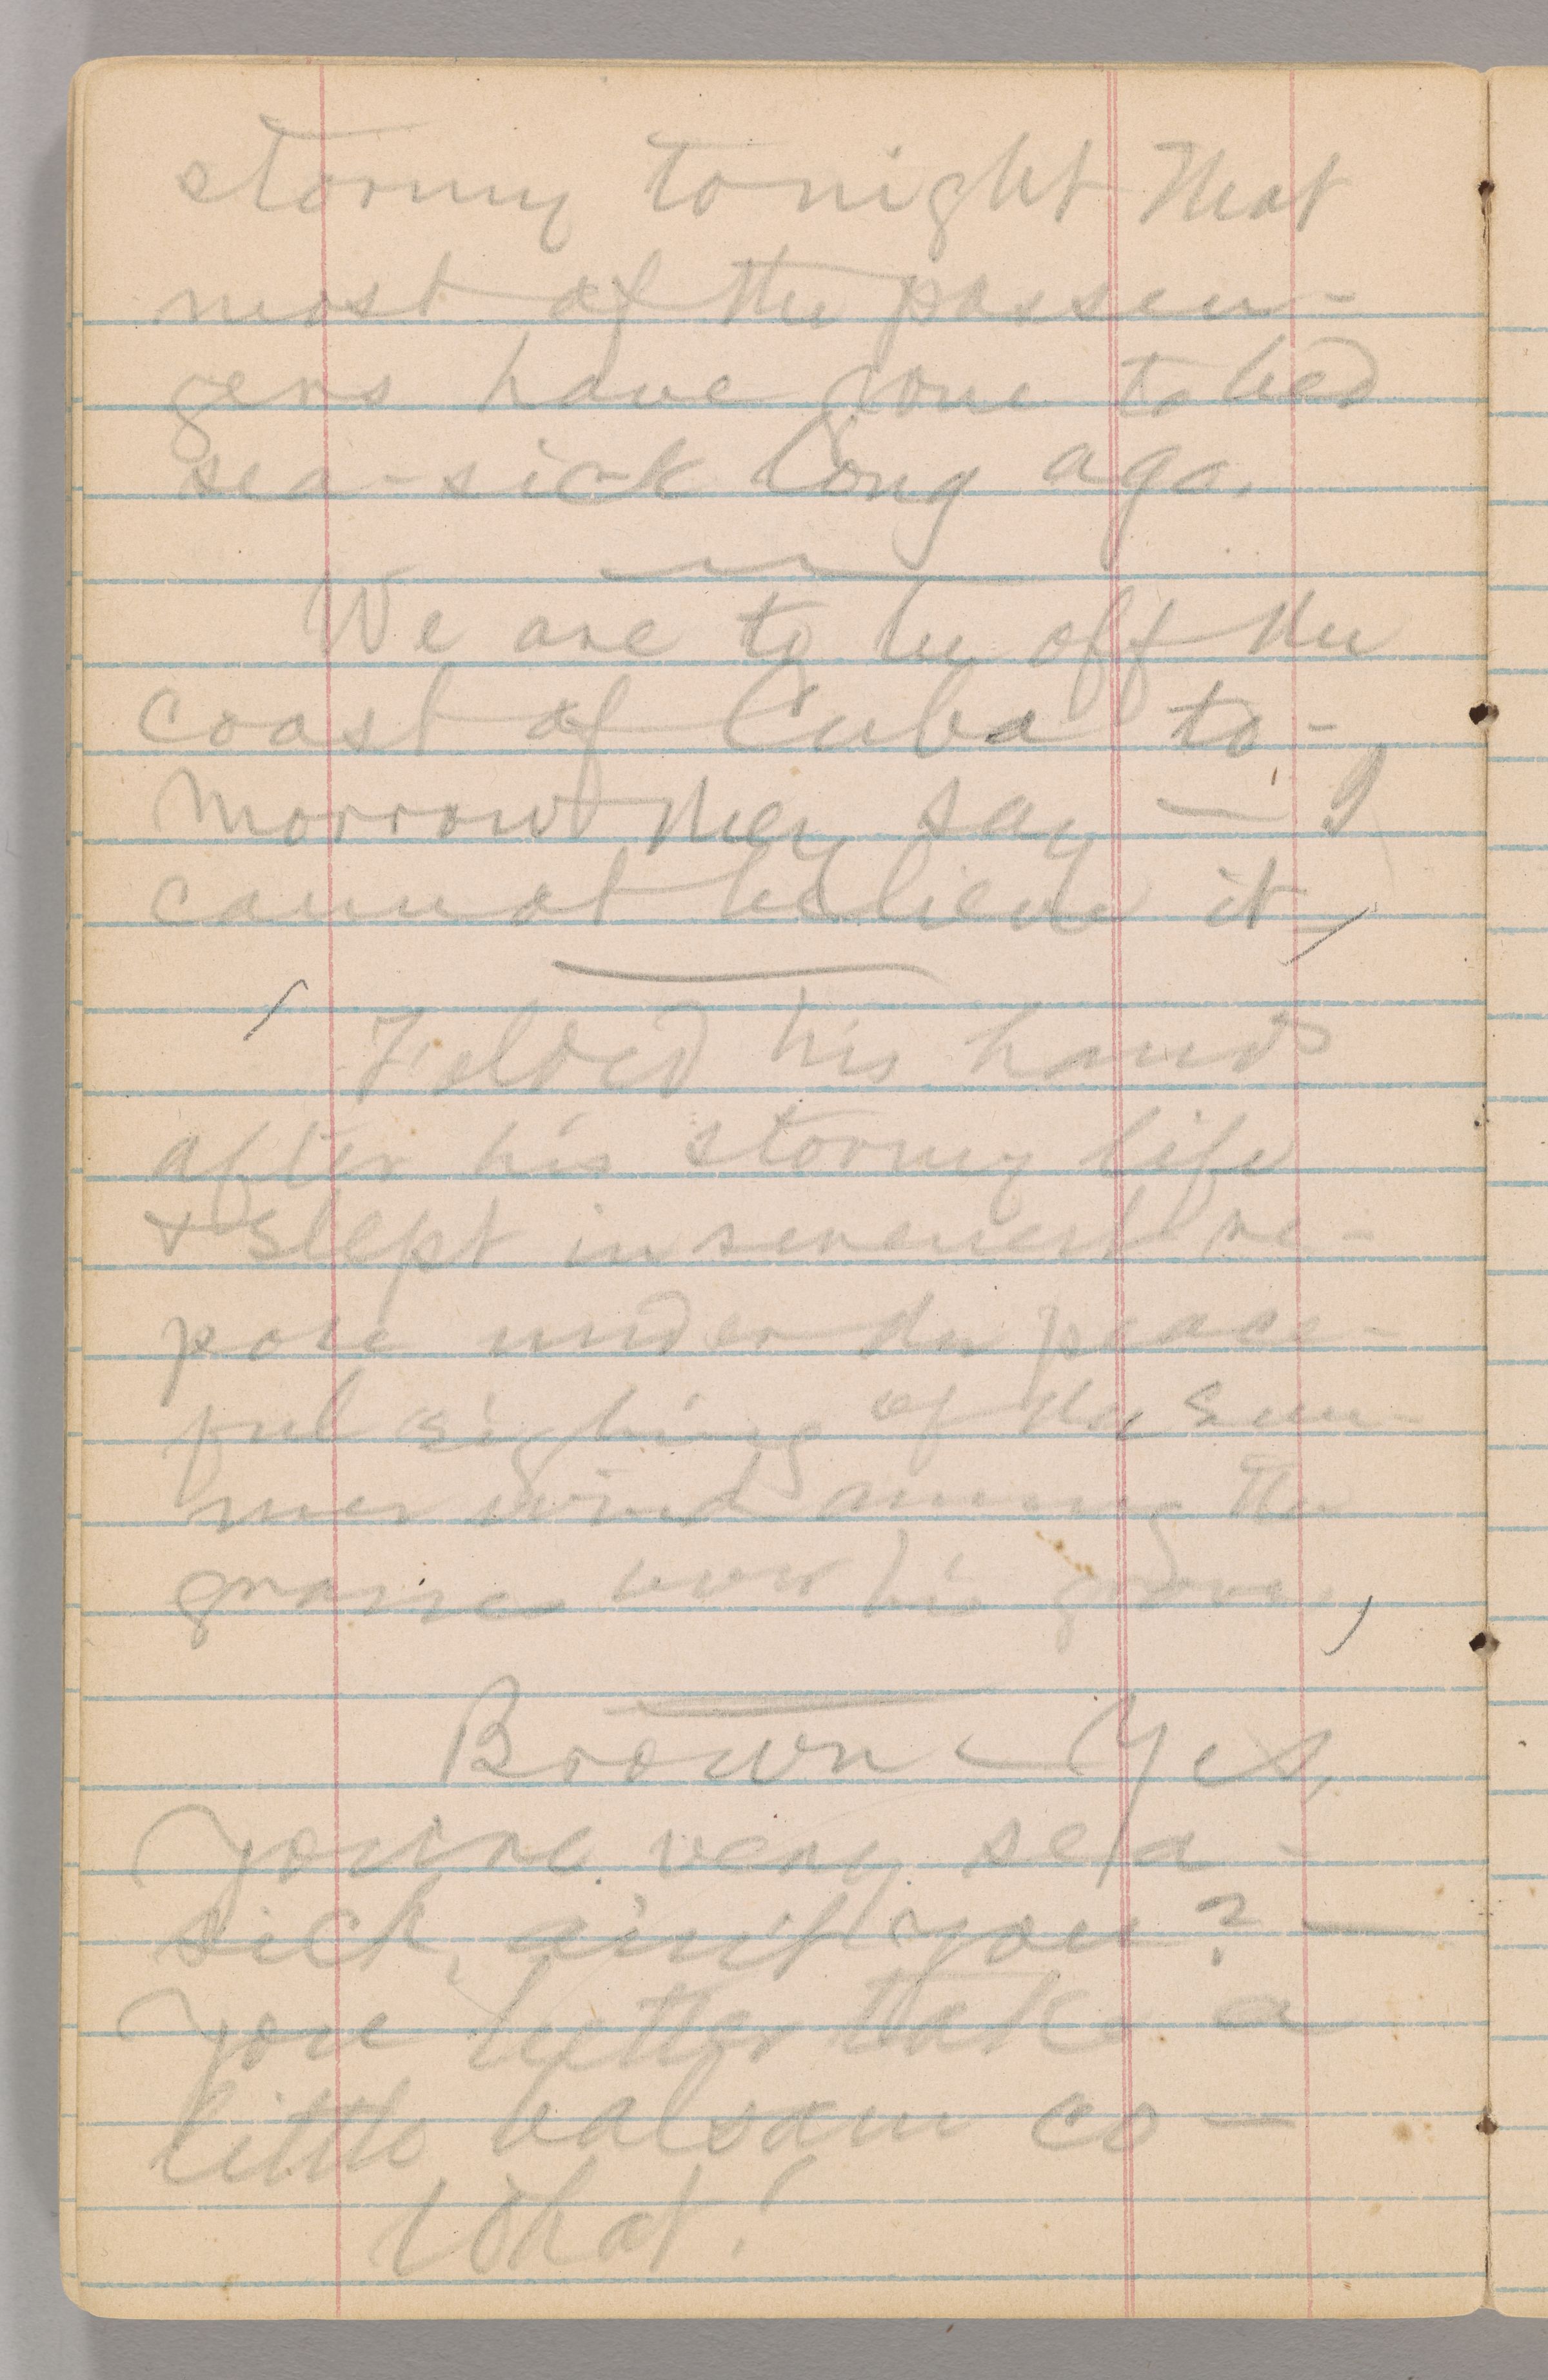 stormy to night that
most of the passen-
gers have gone to bed
sea-sick long ago.
We are to be off the
coast of Cuba to-
morrow they say — I
cannot believe it
Folded his hands
after his stormy life
& slept in serenest re-
pose under the peace-
ful sighing of the sum-
mer wind among the
grasses over his grave.
Brown — Yes,
you're very sea-
sick, ain't you? —
you better take a
little balsam co —
What!